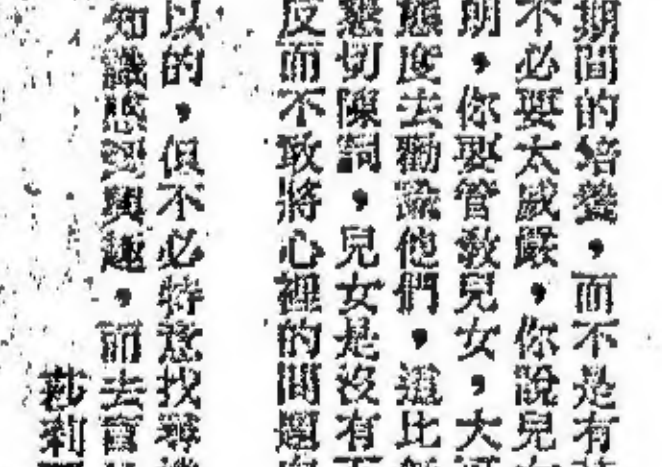 期間的培養，而不是有
不必要太威嚴，你說兒
期，你要管教兒女，大
態度去勸諭他們，這比
懇切陳詞，兒女是沒有
反而不敢將心裡的問題
以的，但不必特意找尋
知識感到興趣，而去
莎利